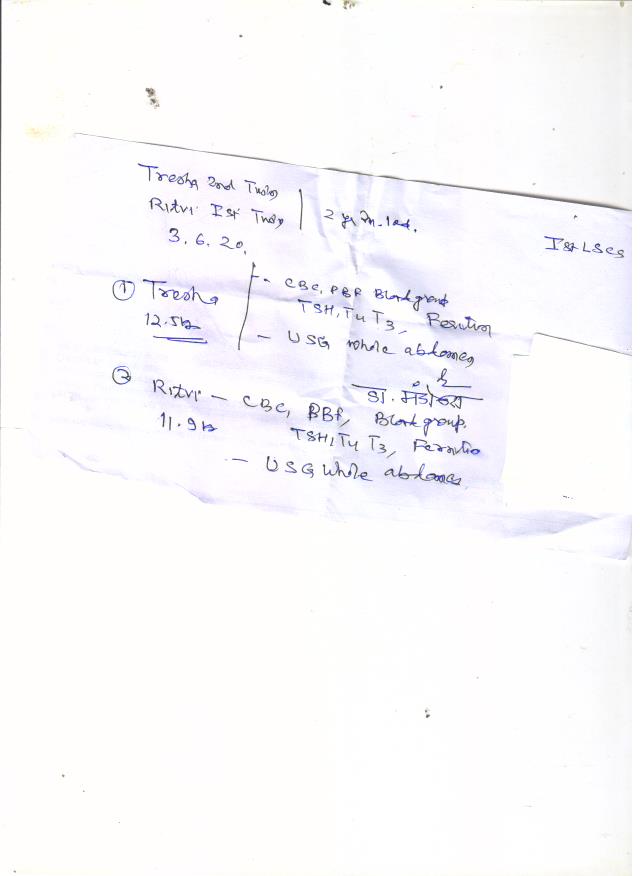 Tresha 2nd Twin
Ritvi Ist Twin
2 yr
3.6.20.
Ist LSCS
① Tresha
12.5
- CBC, PBF Blood group
TSH, T4 T3, Ferritin
- USG whole abdomen
डा.
② Ritvi - CBC, PBF, Blood group.
11.9
TSH, T4 T3, Ferritin
- USG Whole abdomen